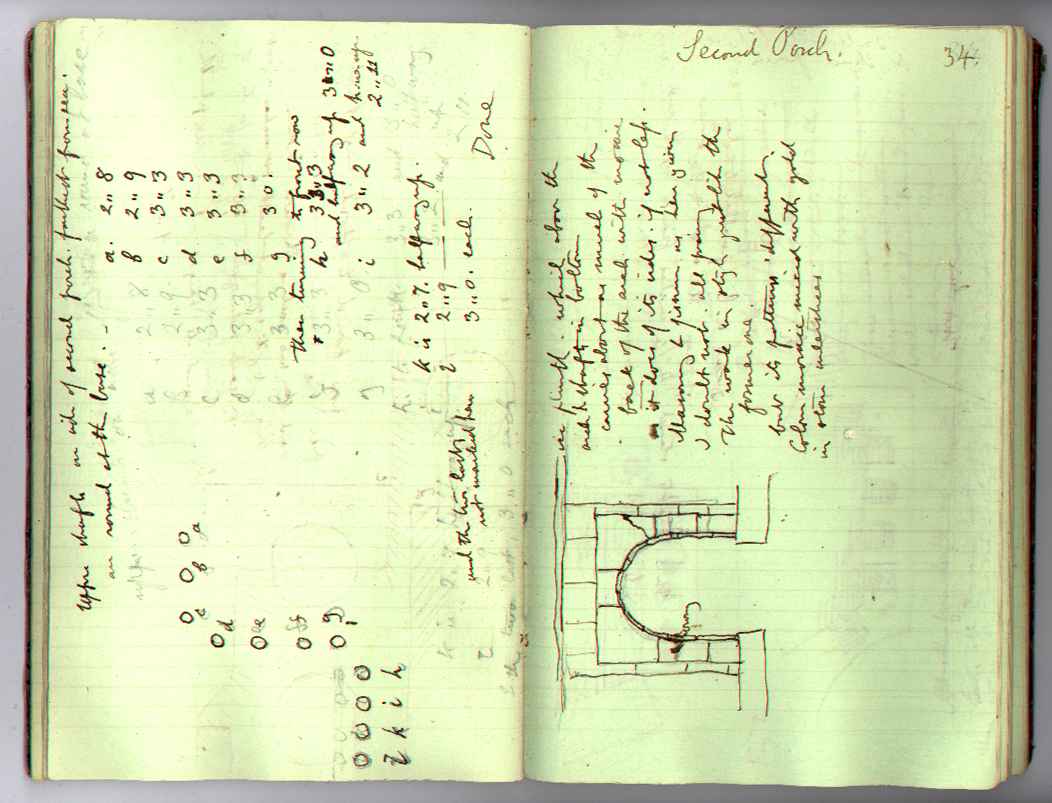 Upper shafts on side of second porch. farthest from sea.
are round at the base. -
a. 2"8
b 2"9
c 3"3
d 3"3
e 3"3
f 3"3
g 3 0.
then turning to front now
h 3"3
and halfway up 3"0
i 3"2 and halfway up
2"11
k is 2"7. halfway up.
l 2"9
and the two last 3"0. each.
not marked here
Done
a
b
c
d
e
f
g
l k i h
Second Porch.
34.
plinth. which above the
arch & shafts in bottom
carries about as much of the
back of the arch with mosaic
as it does of its sides. if not less
Masonry & fission as here given
I doubt not. all facing
The work in style just like the
former one.
but its patterns different.
Colour mosaic mixed with gold
in stone interstices